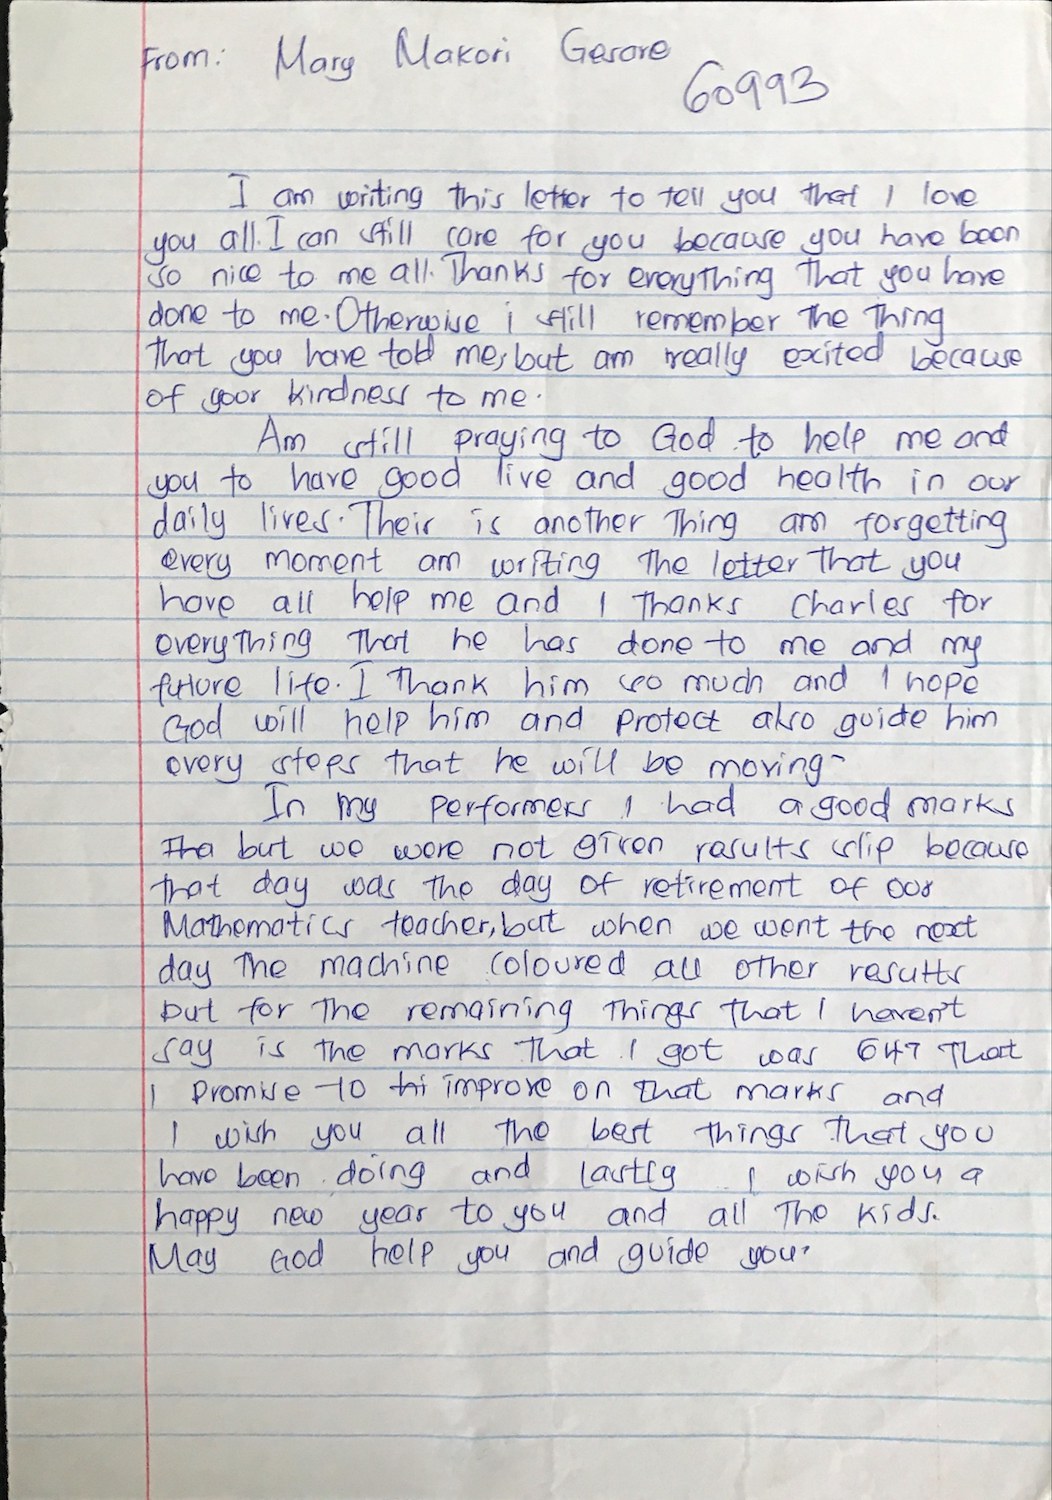 From: Mary Makori Gesore
60993
I am writing this letter to tell you that I love
you all. I can still care for you because you have been
so nice to me all. Thanks for everything that you have
done to me. Otherwise i still remember the thing
that you have told me, but am really excited because
of your kindness to me.
Am still praying to God to help me and
you to have good live and good health in our
daily lives. Their is another thing am forgetting
every moment am writing the letter that you
have all help me and I thanks Charles for
everything that he has done to me and my
future life. I thank him so much and I hope
God will help him and protect also guide him
every steps that he will be moving-
In my performers I had a good marks
but we were not given results slip because
that day was the day of retirement of our
Mathematics teacher, but when we went the next
day the machine coloured all other results
but for the remaining things that I haven't
say is the marks that I got was 647 that
I promise to improve on that marks and
I wish you all the best things that you
have been doing and lastly I wish you a
happy new year to you and all the kids.
May God help you and guide you.